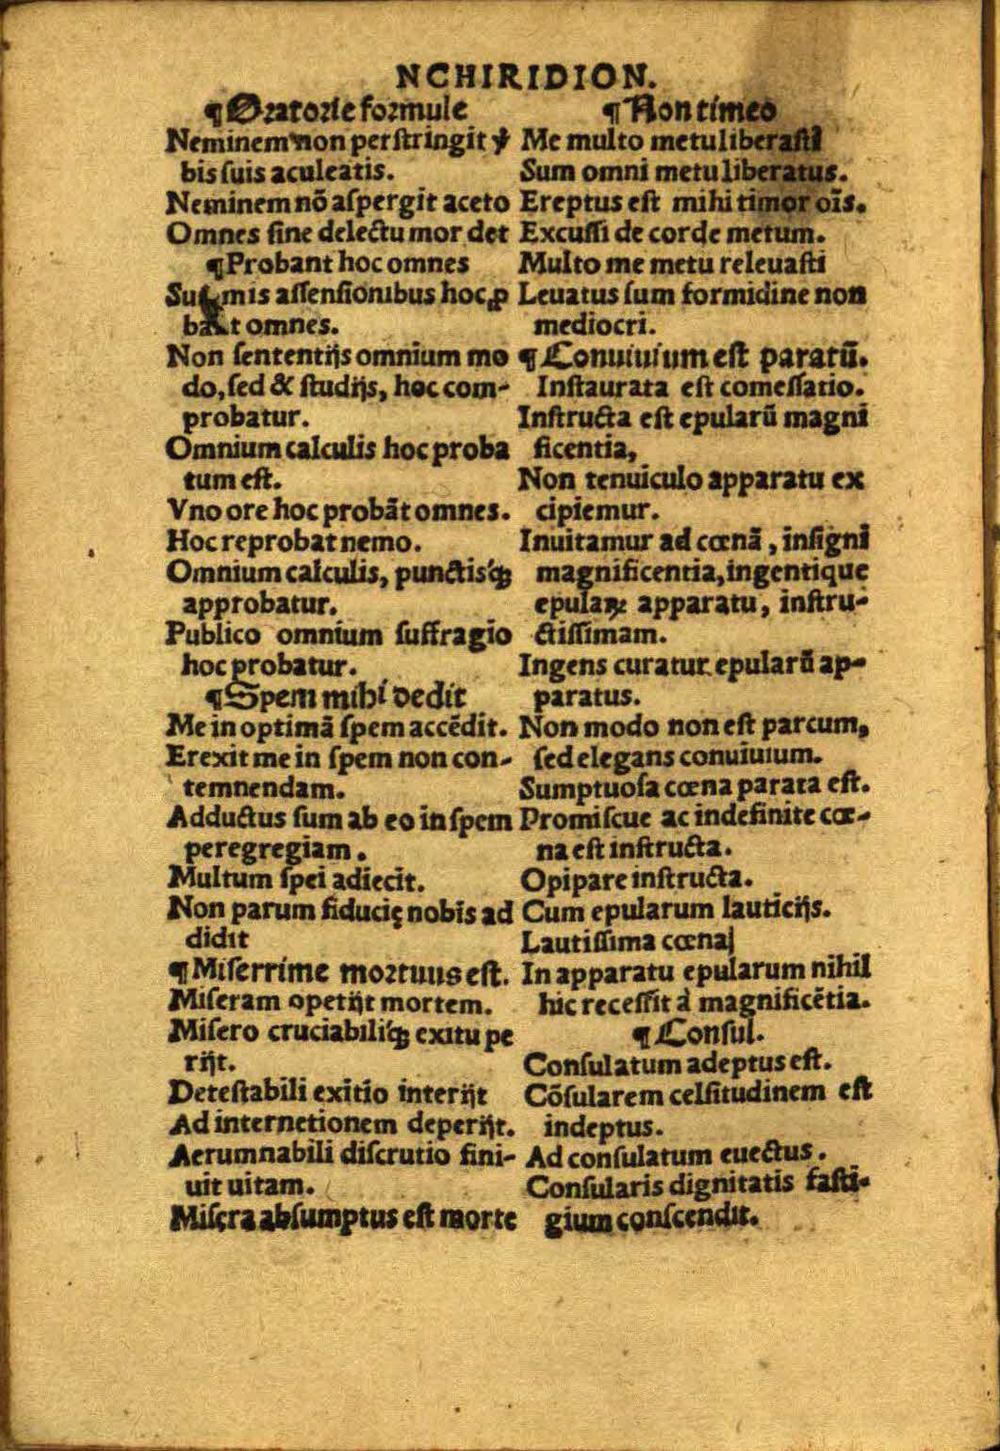 NCHIRIDION.
¶Oratorie formule
Neminem non perſtringit ꝟ
bis ſuis aculeatis.
Neminem nō aſpergit aceto
Omnes ſine delectu mordet
¶Probant hoc omnes
Summis aſſenſionibus hoc ꝓ
bant omnes.
Non ſententijs omnium mo
do, ſed & ſtudijs, hoc com-
probatur.
Omnium calculis hoc proba
tum eſt.
Vno ore hoc probāt omnes.
Hoc reprobat nemo.
Omnium calculis, punctisq́ꝫ
approbatur.
Publico omnium ſuffragio
hoc probatur.
¶Spem mihi dedit
Me in optimā ſpem accēdit.
Erexit me in ſpem non con-
temnendam.
Adductus ſum ab eo in ſpem
peregregiam.
Multum ſpei adiecit.
Non parum fiducię nobis ad
didit
¶Miſerrime mortuus eſt.
Miſeram opetijt mortem.
Miſero cruciabiliq́ꝫ exitu pe
rijt.
Deteſtabili exitio interijt
Ad internetionem deperijt.
Aerumnabili diſcrutio fini-
uit uitam.
Miſera abſumptus eſt morte
¶Non timeo
Me multo metu liberaſti
Sum omni metu liberatus.
Ereptus eſt mihi timor oīs.
Excuſſi de corde metum.
Multo me metu releuaſti
Leuatus ſum formidine non
mediocri.
¶Conuiuium eſt paratū.
Inſtaurata eſt comeſſatio.
Inſtructa eſt epularū magni
ficentia,
Non tenuiculo apparatu ex
cipiemur.
Inuitamur ad cœnā, inſigni
magnificentia, ingentique
epulaꝝ apparatu, inſtru-
ctiſſimam.
Ingens curatur epularū ap-
paratus.
Non modo non eſt parcum,
ſed elegans conuiuium.
Sumptuoſa cœna parata eſt.
Promiſcue ac indefinite cœ-
na eſt inſtructa.
Opipare inſtructa.
Cum epularum lauticijs.
Lautiſſima cœna
In apparatu epularum nihil
hic receſſit à magnificētia.
¶Conſul.
Conſulatum adeptus eſt.
Cōſularem celſitudinem eſt
indeptus.
Ad conſulatum euectus.
Conſularis dignitatis faſti-
gium conſcendit.